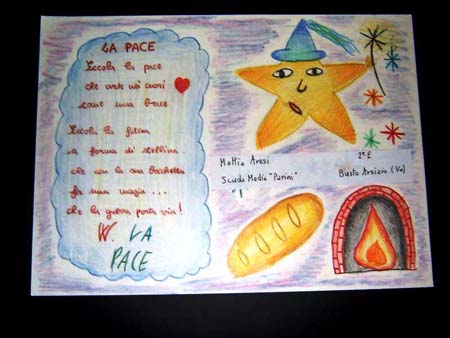 LA PACE
Eccola la pace
che arde nei cuori
come una brace
Eccola la fatina
a forma di stellina
che con la sua bacchetta
fa una magia...
che la guerra porta via!
W. LA
PACE
Mattia Arasi
2ª E
Scuola Media "Parini"
Busto Arsizio (Va)